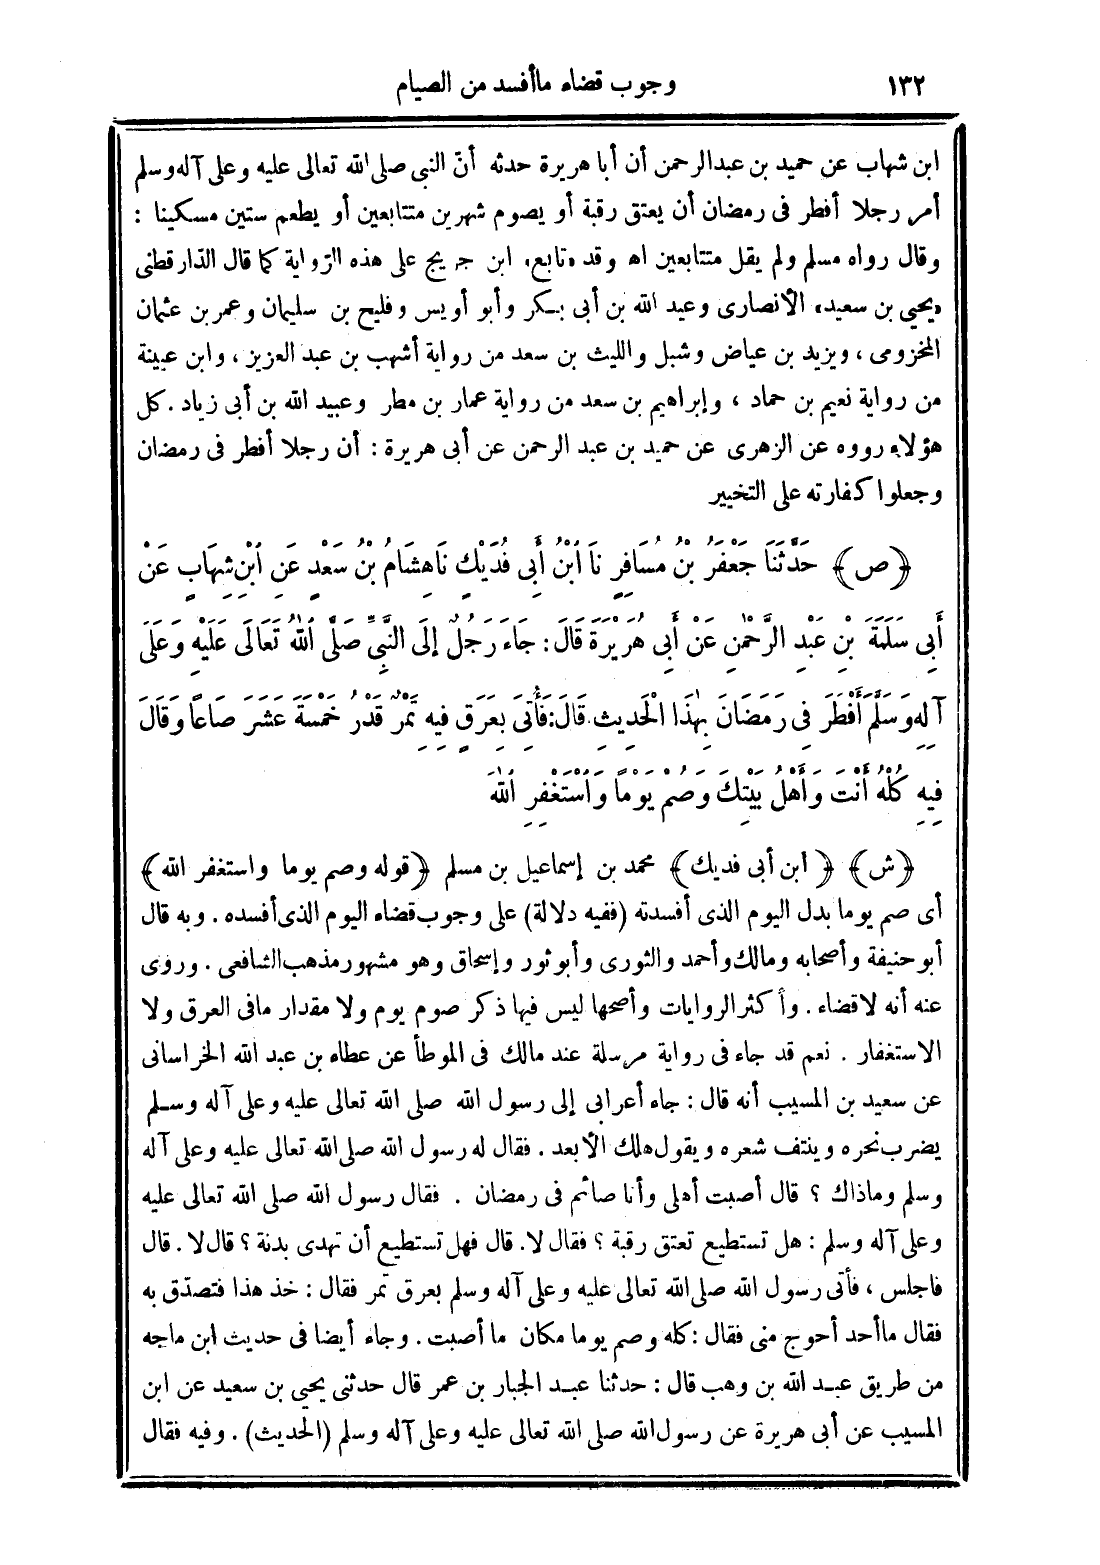 ١٣٢ وجوب قضاء ماأفسد من الصيام
ابن شهاب عن حميد بن عبدالرحمن أن أبا هريرة حدثه أنّ النبى صلى الله تعالى عليه وعلى آله وسلم
أمر رجلا أفطر فى رمضان أن يعتق رقبة أو يصوم شهرين متتابعين أو يطعم ستين مسكينا :
وقال رواه مسلم ولم يقل متتابعين اه وقد «تابع» ابن جريج على هذه الرّواية كما قال الدّارقطنى
«يحيى بن سعيد» الأنصارى وعبد الله بن أبى بكر وأبو أويس وفليح بن سليمان وعمر بن عثمان
المخزومى ، ويزيد بن عياض وشبل والليث بن سعد من رواية أشهب بن عبد العزيز ، وابن عيينة
من رواية نعيم بن حماد ، وإبراهيم بن سعد من رواية عمار بن مطر وعبيد الله بن أبى زياد . كل
هؤلاء رووه عن الزهرى عن حميد بن عبد الرحمن عن أبى هريرة : أن رجلا أفطر فى رمضان
وجعلوا كفارته على التخيير
﴿ص﴾ حَدَّثَنَا جَعْفَرُ بْنُ مُسَافِرٍ نَا ابْنُ أَبِى فُدَيْكٍ نَاهِشَامُ بْنُ سَعْدٍ عَنِ ابْنِ شِهَابٍ عَنْ
أَبِى سَلَمَةَ بْنِ عَبْدِ الرَّحْمٰنِ عَنْ أَبِى هُرَيْرَةَ قَالَ : جَاءَ رَجُلٌ إِلَى النَّبِىِّ صَلَّى اللهُ تَعَالَى عَلَيْهِ وَعَلَى
آلِهِ وَسَلَّمَ أَفْطَرَ فِى رَمَضَانَ بِهٰذَا الْحَدِيثِ قَالَ : فَأُتِىَ بِعَرَقٍ فِيهِ تَمْرٌ قَدْرُ خَمْسَةَ عَشَرَ صَاعًا وَقَالَ
فِيهِ كُلْهُ أَنْتَ وَأَهْلُ بَيْتِكَ وَصُمْ يَوْمًا وَاسْتَغْفِرِ اللهَ
﴿ش﴾ ﴿ابن أبى فديك﴾ محمد بن إسماعيل بن مسلم ﴿قوله وصم يوما واستغفر الله﴾
أى صم يوما بدل اليوم الذى أفسدته (ففيه دلالة) على وجوب قضاء اليوم الذى أفسده . وبه قال
أبو حنيفة وأصحابه ومالك وأحمد والثورى وأبو ثور وإسحاق وهو مشهور مذهب الشافعى . وروى
عنه أنه لاقضاء . وأكثر الروايات وأصحها ليس فيها ذكر صوم يوم ولا مقدار مافى العرق ولا
الاستغفار . نعم قد جاء فى رواية مرسلة عند مالك فى الموطأ عن عطاء بن عبد الله الخراسانى
عن سعيد بن المسيب أنه قال : جاء أعرابى إلى رسول الله صلى الله تعالى عليه وعلى آله وسلم
يضرب نحره وينتف شعره ويقول هلك الأبعد . فقال له رسول الله صلى الله تعالى عليه وعلى آله
وسلم وماذاك ؟ قال أصبت أهلى وأنا صائم فى رمضان . فقال رسول الله صلى الله تعالى عليه
وعلى آله وسلم : هل تستطيع تعتق رقبة ؟ فقال لا . قال فهل تستطيع أن تهدى بدنة ؟ قال لا . قال
فاجلس ، فأتى رسول الله صلى الله تعالى عليه وعلى آله وسلم بعرق تمر فقال : خذ هذا فتصدّق به
فقال ماأحد أحوج منى فقال : كله وصم يوما مكان ما أصبت . وجاء أيضا فى حديث ابن ماجه
من طريق عبد الله بن وهب قال : حدثنا عبد الجبار بن عمر قال حدثنى يحيى بن سعيد عن ابن
المسيب عن أبى هريرة عن رسول الله صلى الله تعالى عليه وعلى آله وسلم (الحديث) . وفيه فقال